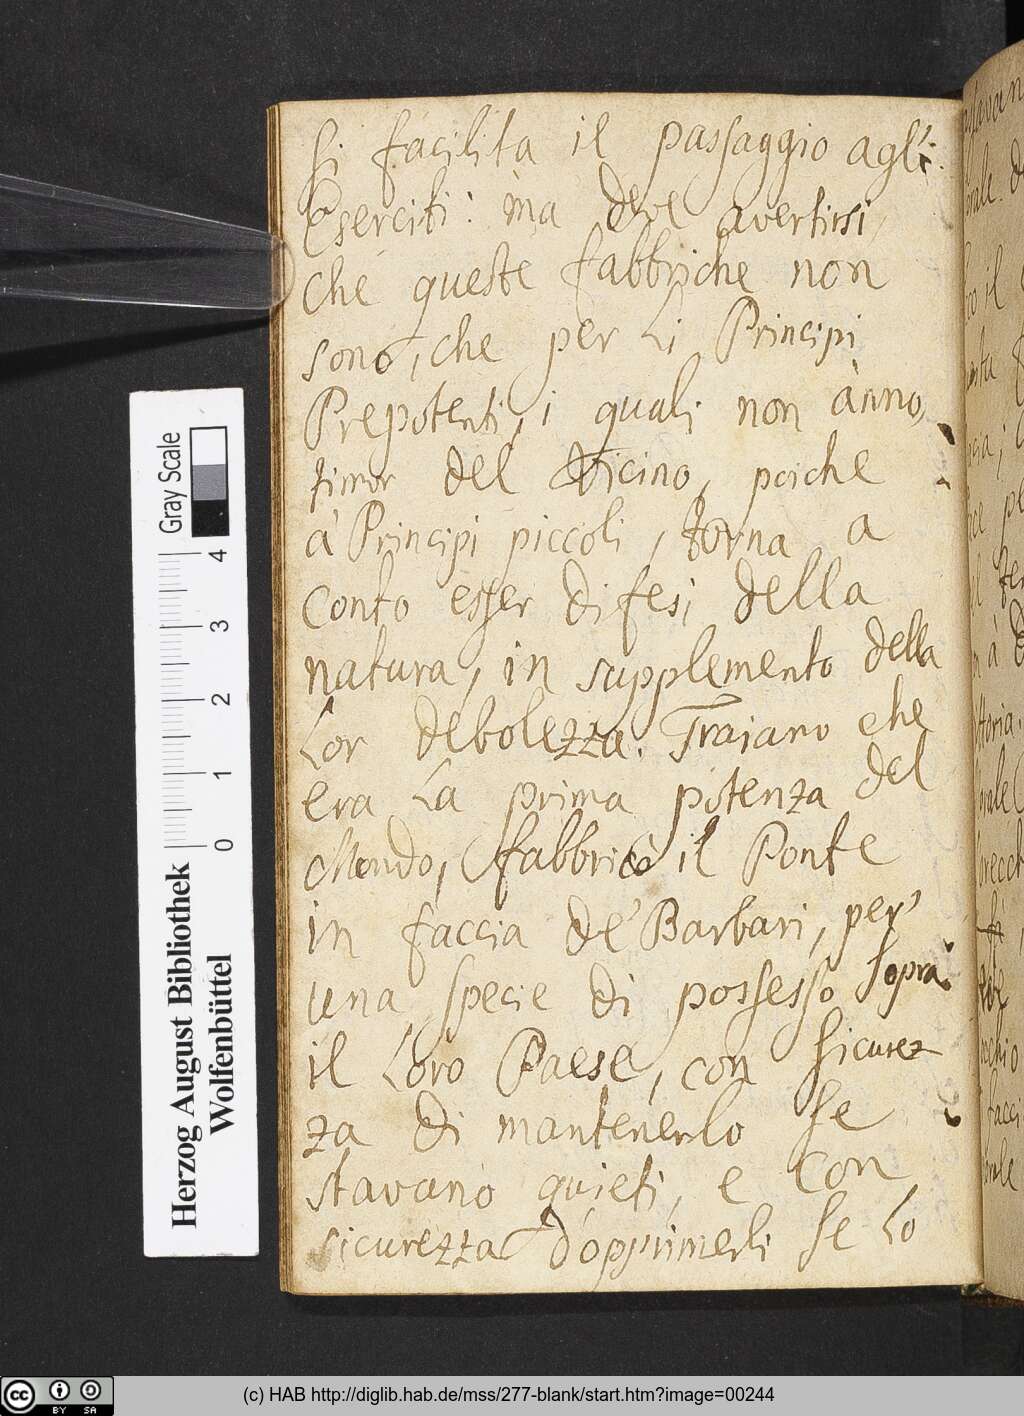 si facilita il passaggio agl'
Eserciti: ma deve avertirsi,
che queste fabbriche non
sono, che per li Principi
Prepotenti, i quali non ànno
timor del Vicino, poiche
à Principi piccoli, torna a
conto esser difesi della
natura, in supplemento della
Lor debolezza. Traiano che
era La prima potenza del
Mondo, fabbricò il Ponte
in faccia de' Barbari, per
una specie di possesso sopra
il Loro Paese, con sicurez
za di mantenerlo se
stavano quieti, e con
sicurezza d'opprimerli se Lo
Gray Scale
4
3
2
1
0
Herzog August Bibliothek
Wolfenbüttel
cc BY SA
(c) HAB http://diglib.hab.de/mss/277-blank/start.htm?image=00244